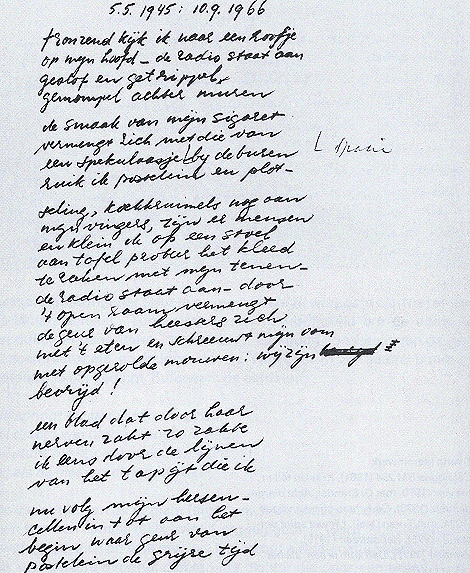 5.5.1945 : 10.9.1966
fronzend kijk ik naar een roosje
op mijn hoofd – de radio staat aan
geslof en getrippel,
gemompel achter muren
de smaak van mijn sigaret
vermengt zich met die van
een spekulaasje/ by de buren
ruik ik postelein en plot–
seling, koekkruimels nog aan
mijn vingers, zijn er mensen
en klein ik op een stoel
aan tafel probeer het kleed
te raken met mijn tenen–
de radio staat aan– door
't open raam vermengt
de geur van heesters zich
met 't eten en schreeuwt mijn oom
met opgerolde mouwen: wij zijn
bevrijd!
een blad dat door haar
nerven zakt zo zakte
ik eens door de lijnen
van het tapijt die ik
nu volg mijn hersen–
cellen in tot aan het
begin waar geur van
postelein de grijze tijd